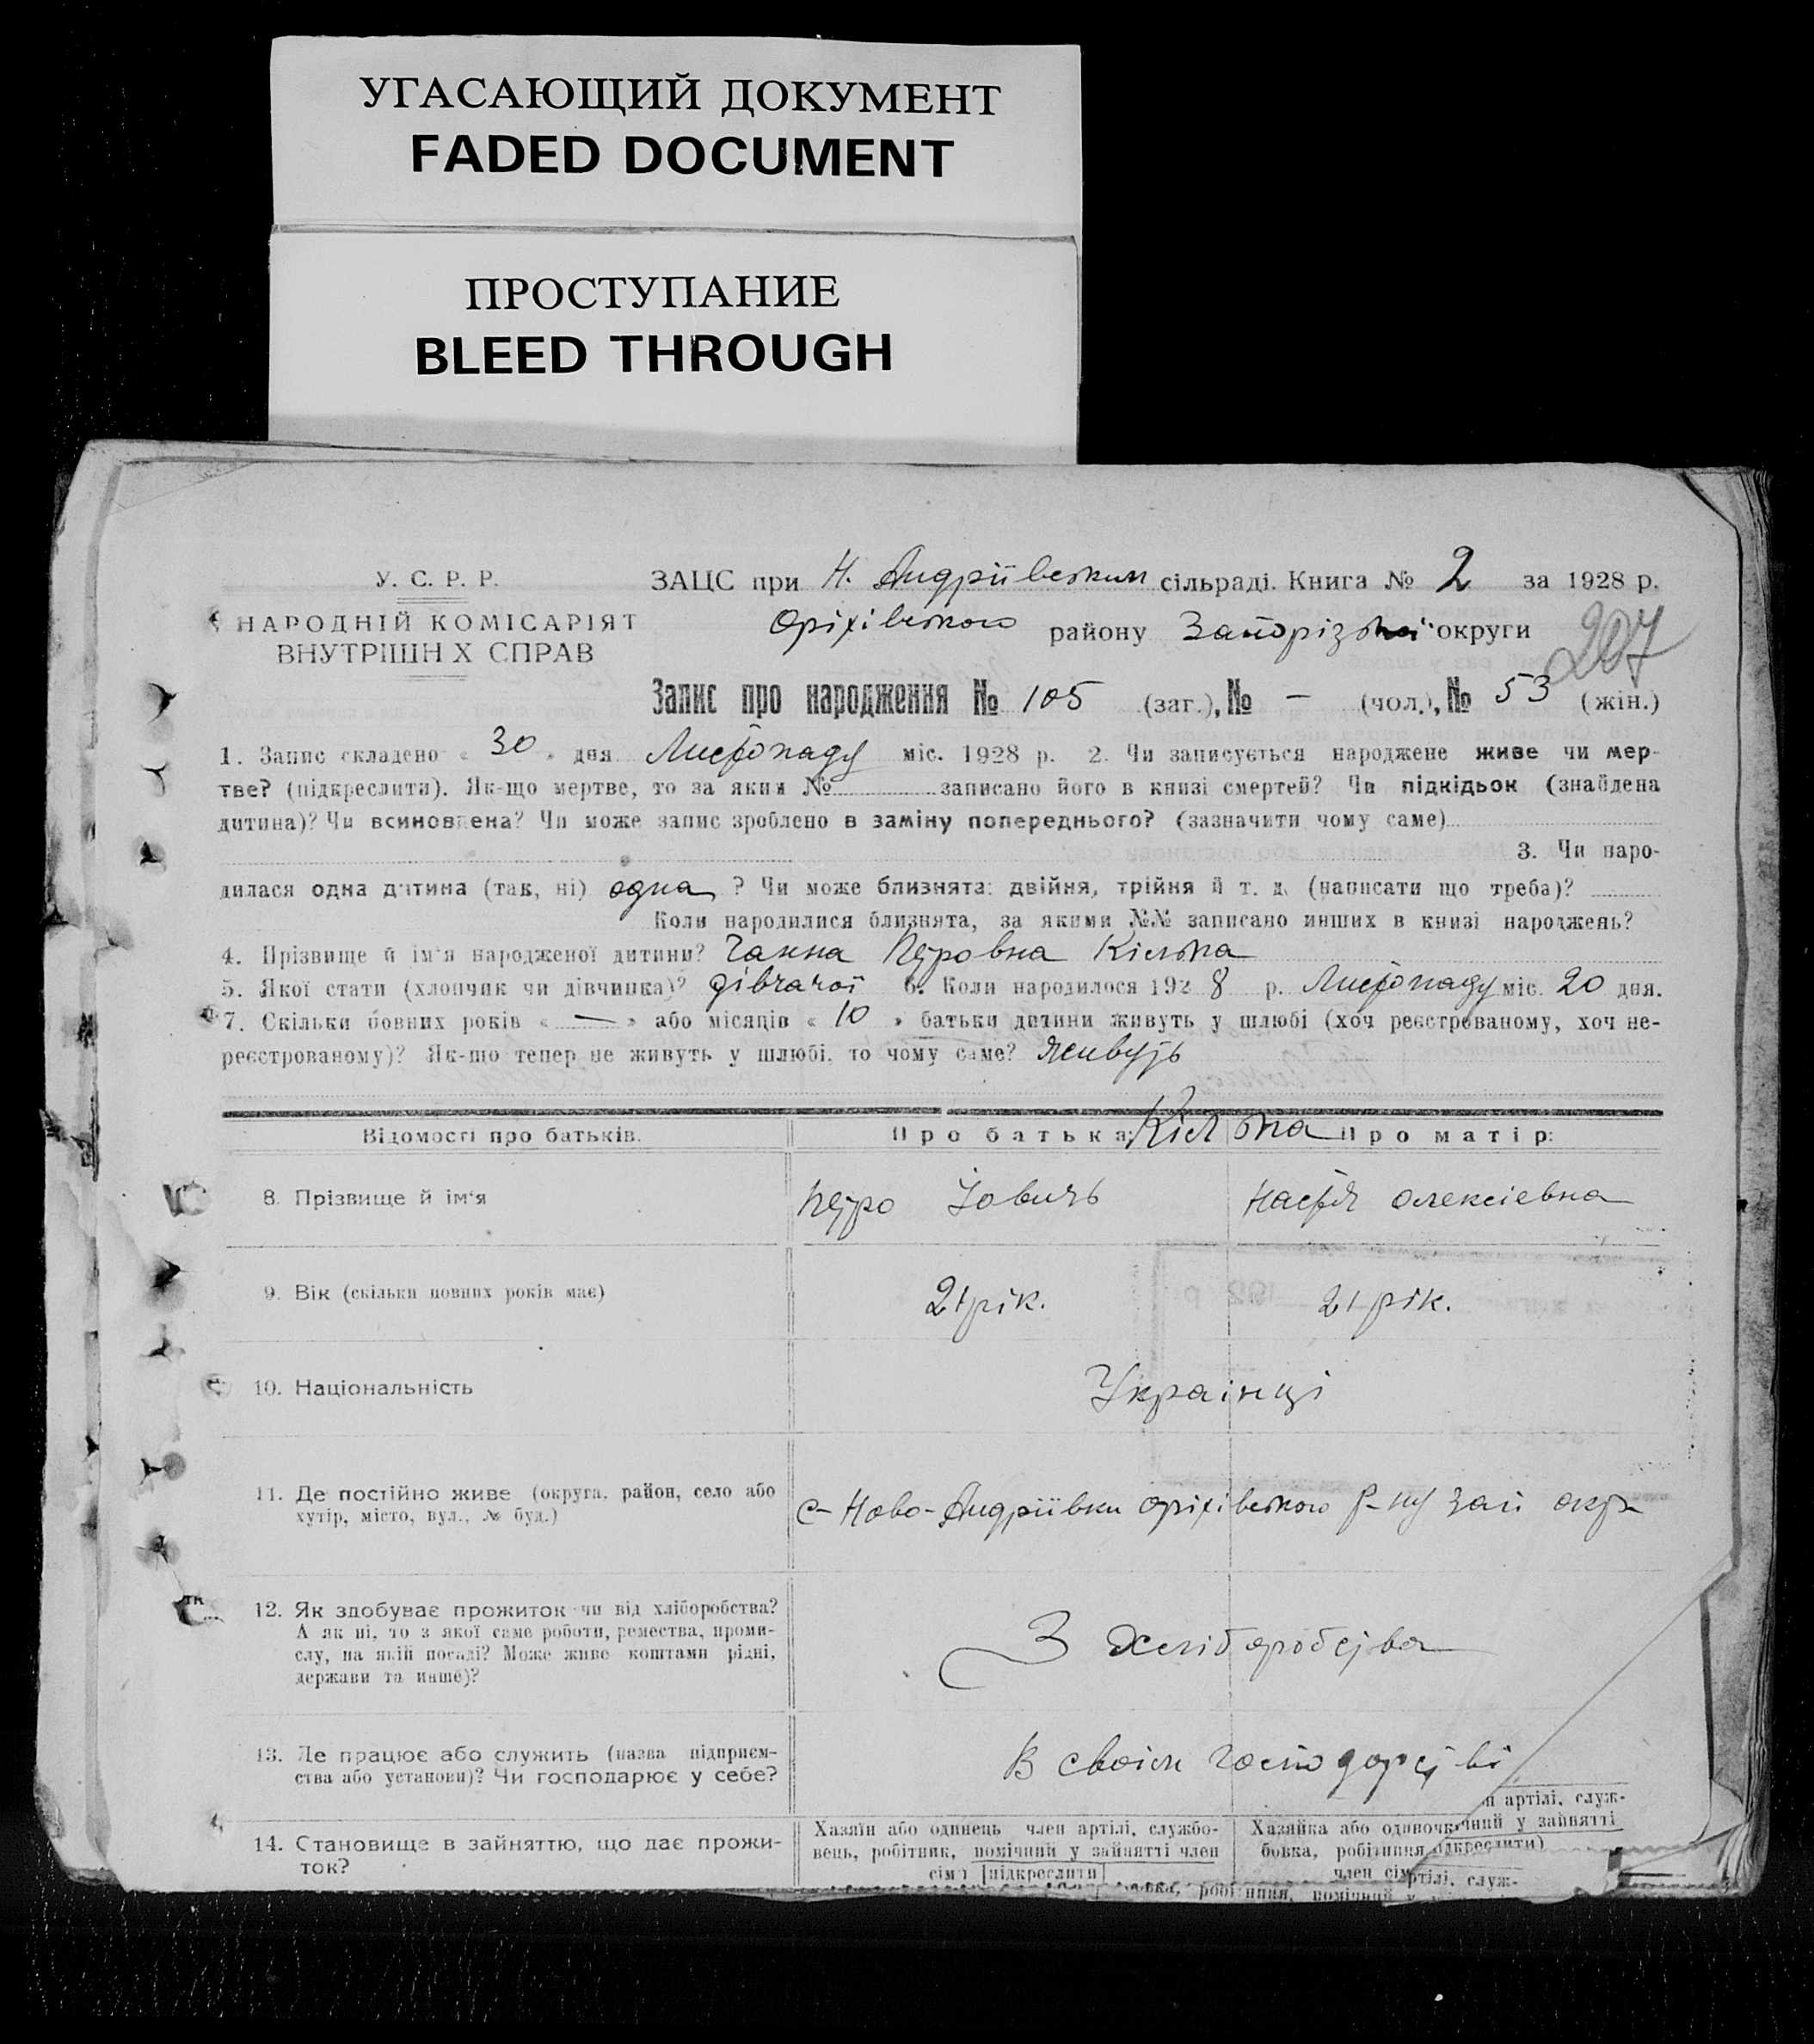 УГАСАЮЩИЙ ДОКУМЕНТ
FADED DOCUMENT
ПРОСТУПАНИЕ
BLEED THROUGH
У. С. Р. Р.
НАРОДНІЙ КОМІСАРІЯТ
ВНУТРІШН Х СПРАВ
ЗАЦС при Н. Андріївским сільраді. Книга № 2 за 1928 р.
Оріхівського району Запорізької округи
207
Запис про народження № 105 (заг.), № — (чол.), № 53 (жін.)
1. Запис складено « 30 » дня Листопаду міс. 1928 р. 2. Чи записується народжене живе чи мер-
тве? (підкреслити). Як-що мертве, то за яким № записано його в книзі смертей? Чи підкідьок (знайдена
дитина)? Чи всиновлена? Чи може запис зроблено в заміну попереднього? (зазначити чому саме)
3. Чи наро-
дилася одна дитина (так, ні) одна ? Чи може близнята: двійня, трійня й т. д. (написати що треба)?
Коли народилися близнята, за якими №№ записано инших в книзі народжень?
4. Прізвище й ім'я народженої дитини? Ганна Петровна Кієтка
5. Якої стати (хлопчик чи дівчинка)? дівчачої 6. Коли народилося 1928 р. Листопаду міс. 20 дня.
7. Скільки повних років « — » або місяців « 10 » батьки дитини живуть у шлюбі (хоч реєстрованому, хоч не-
реєстрованому)? Як-що тепер не живуть у шлюбі, то чому саме? живуть
Відомості про батьків. Про батька: Про матір:
8. Прізвище й ім'я Петро Йович Настя Олексієвна
9. Вік (скільки повних років має) 21 рік. 21 рік.
10. Національність Українці
11. Де постійно живе (округа, район, село або
хутір, місто, вул., № буд.)
с- Ново-Андріївки Оріхівського р-ну Зап окр
12. Як здобуває прожиток чи від хліборобства?
А як ні, то з якої саме роботи, ремества, проми-
слу, на якій посаді? Може живе коштами рідні,
держави та инше)?
З хліборобства
13. Де працює або служить (назва підприєм-
ства або установи)? Чи господарює у себе?
В своім господарстві
14. Становище в зайняттю, що дає прожи-
ток?
Хазяїн або одинець член артілі, службо-
вець, робітник, помічний у зайнятті член
сім'ї (підкреслити)
Хазяйка або одиночка
бовка, робітниця
член сім
артілі, служ-